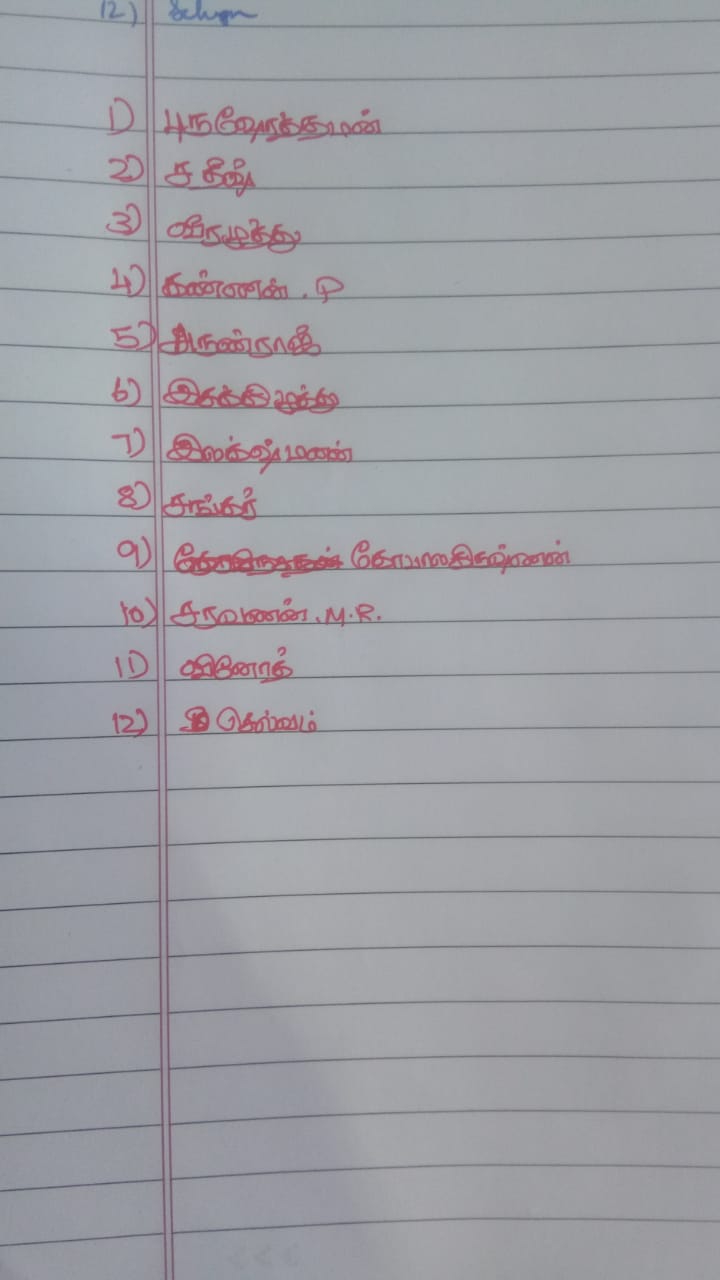 12) Selvam
1) புருஷோத்தமன்
2) சதீஷ்
3) வீரமுத்து
4) கண்ணன் . P
5) அருண்ராஜ்
6) இசக்கிமுத்து
7) இலக்ஷ்மணன்
8) சங்கர்
9) கோபாலகிருஷ்ணன்
10) சரவணன் . M.R.
11) வினோத்
12) செல்வம்